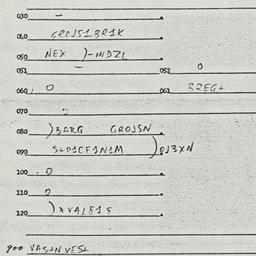 030 -
040 GROJS1BR1K
050 NEX )-INDZL
051 - 052 0
060. 0 061 BREG+
070
080 )BARG GROJSN
090 S+D1CF1N1M )QJ3XN
100 . 0
110 0
120 )XVAL815
900 VAS+NVES+